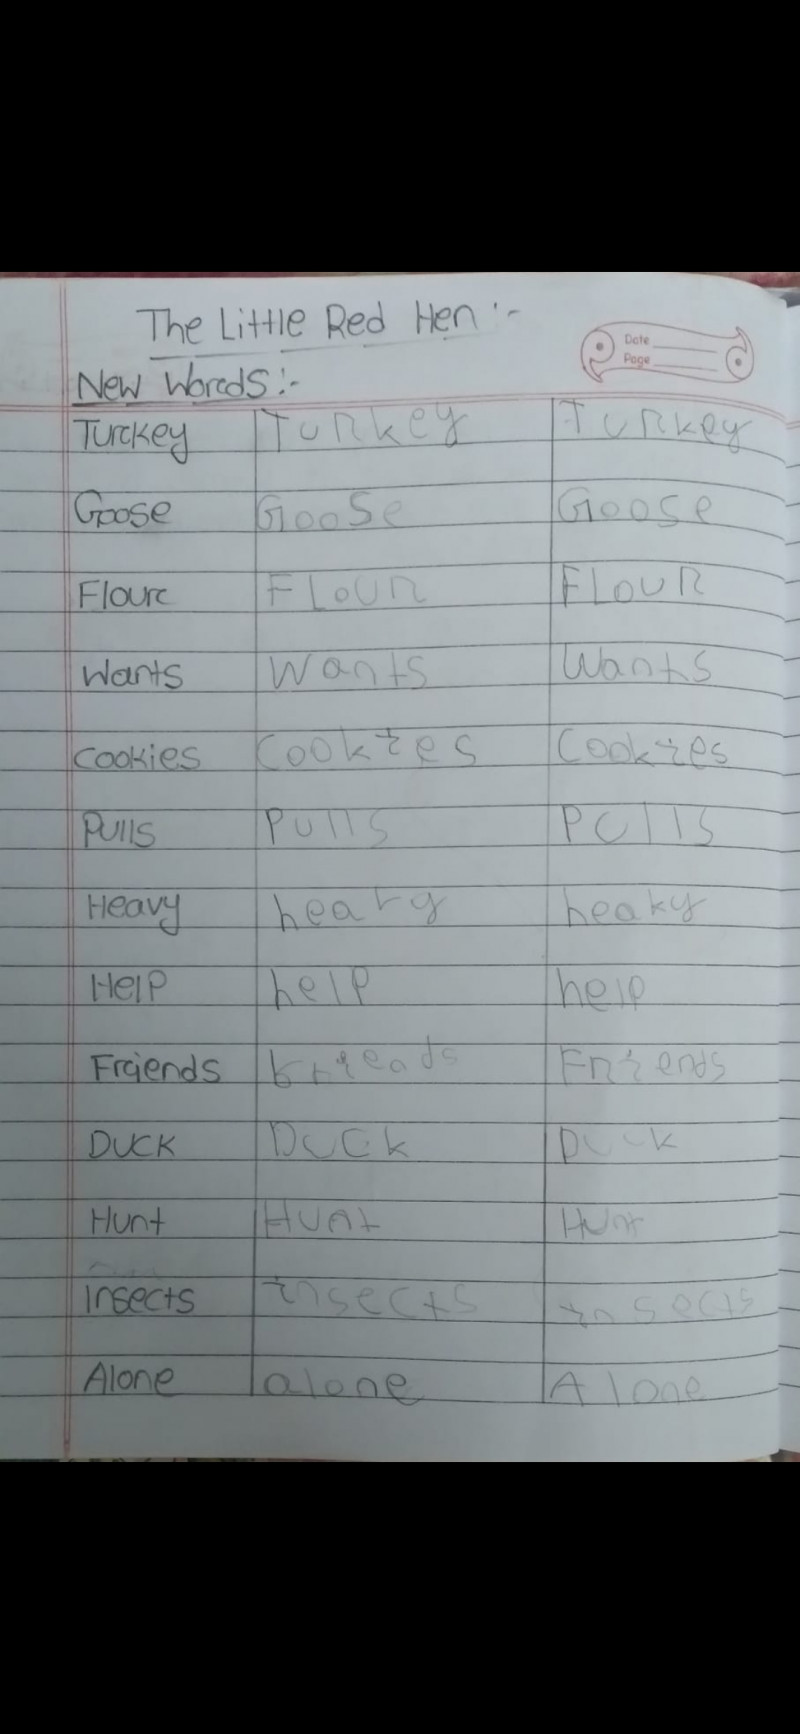 The Little Red Hen :-
Date
Page
New Words :-
Turkey Turkey Turkey
Goose Goose Goose
Flour FLOUR FLOUR
Wants Wants Wants
Cookies Cookies Cookies
Pulls Pulls Pulls
Heavy heavy heaky
Help help help
Friends Friends
Duck Duck Duck
Hunt Hunt Hunt
Insects insects insects
Alone alone Alone